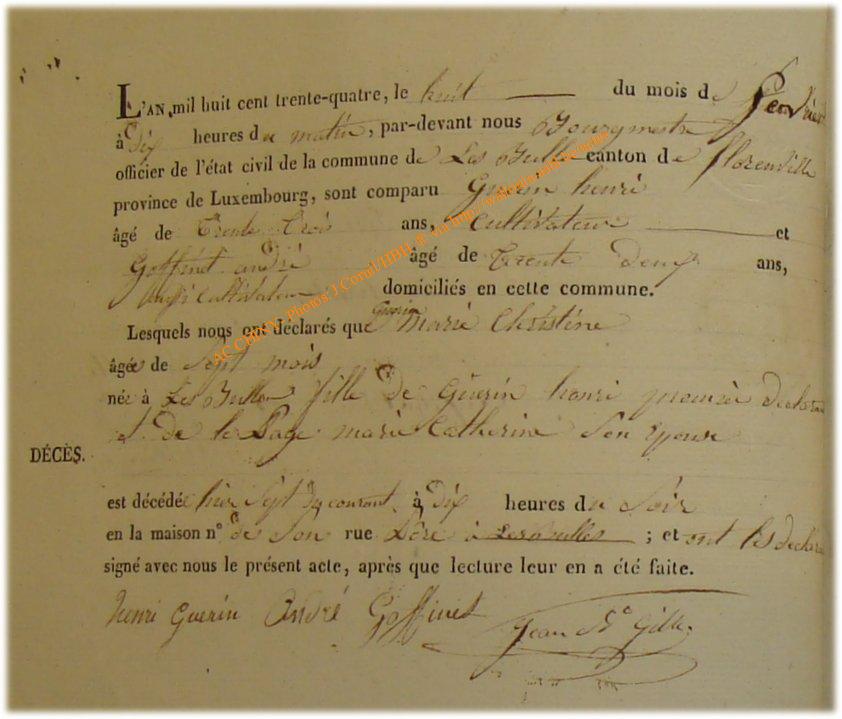 L'AN mil huit cent trente-quatre, le huit du mois de
à Dix heures du matin, par-devant nous Bourgmestre
officier de l'état civil de la commune de Les Bulles canton de florenville
province de Luxembourg, sont comparu Guerin henri
âgé de Trente Trois ans, Cultivateur et
Goffinet andré âgé de Trente Deux ans,
aussi Cultivateur domiciliés en cette commune.
Lesquels nous ont déclarés que Guerin Marie Christine
âgée de Sept mois
née à Les Bulles fille de Guerin henri premier
et de le Page marie Catherine Son Epouse
DÉCÈS.
est décédée hier Sept du courant, à Dix heures du Soir
en la maison nº de Son rue Père à Les Bulles ; et ont les
signé avec nous le présent acte, après que lecture leur en a été faite.
henri Guerin André Goffinet Jean Gille
ACCHPHV Photos J Cornil